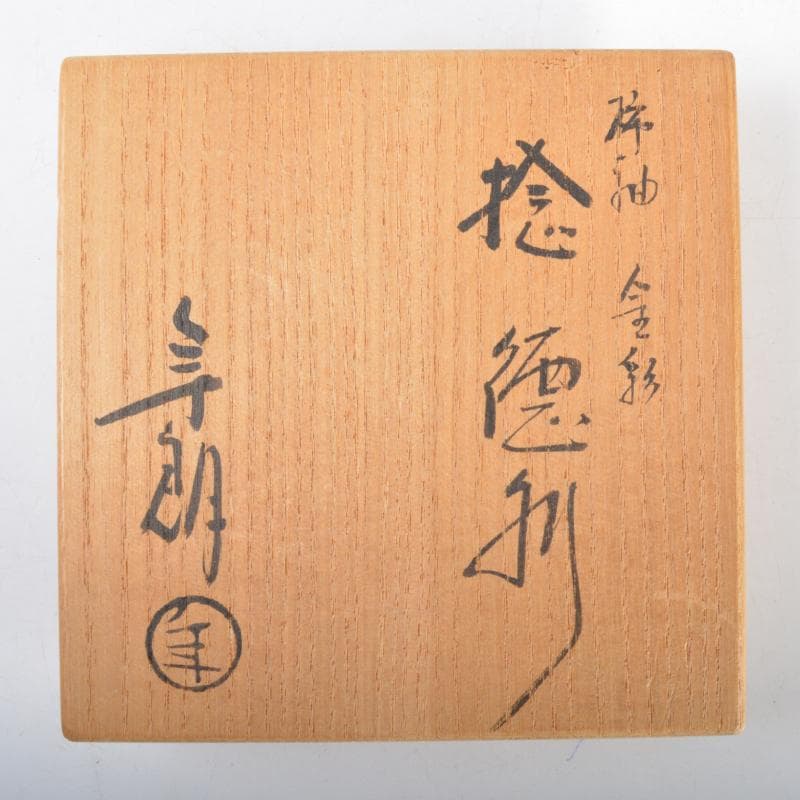 柿釉 金彩
捻徳利
年朗
年